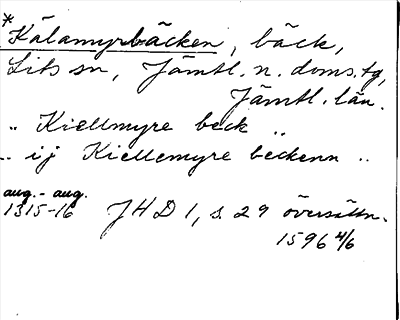 *Kälamyrbäcken, bäck,
Lits sn, Jämtl. n. doms.tg,
Jämtl. län.
.. Kiellmyre beck ..
.. ij Kiellemyre beckenn ..
aug. - aug.
1315-16 JHD 1, s. 29 översättn.
1596 4/6